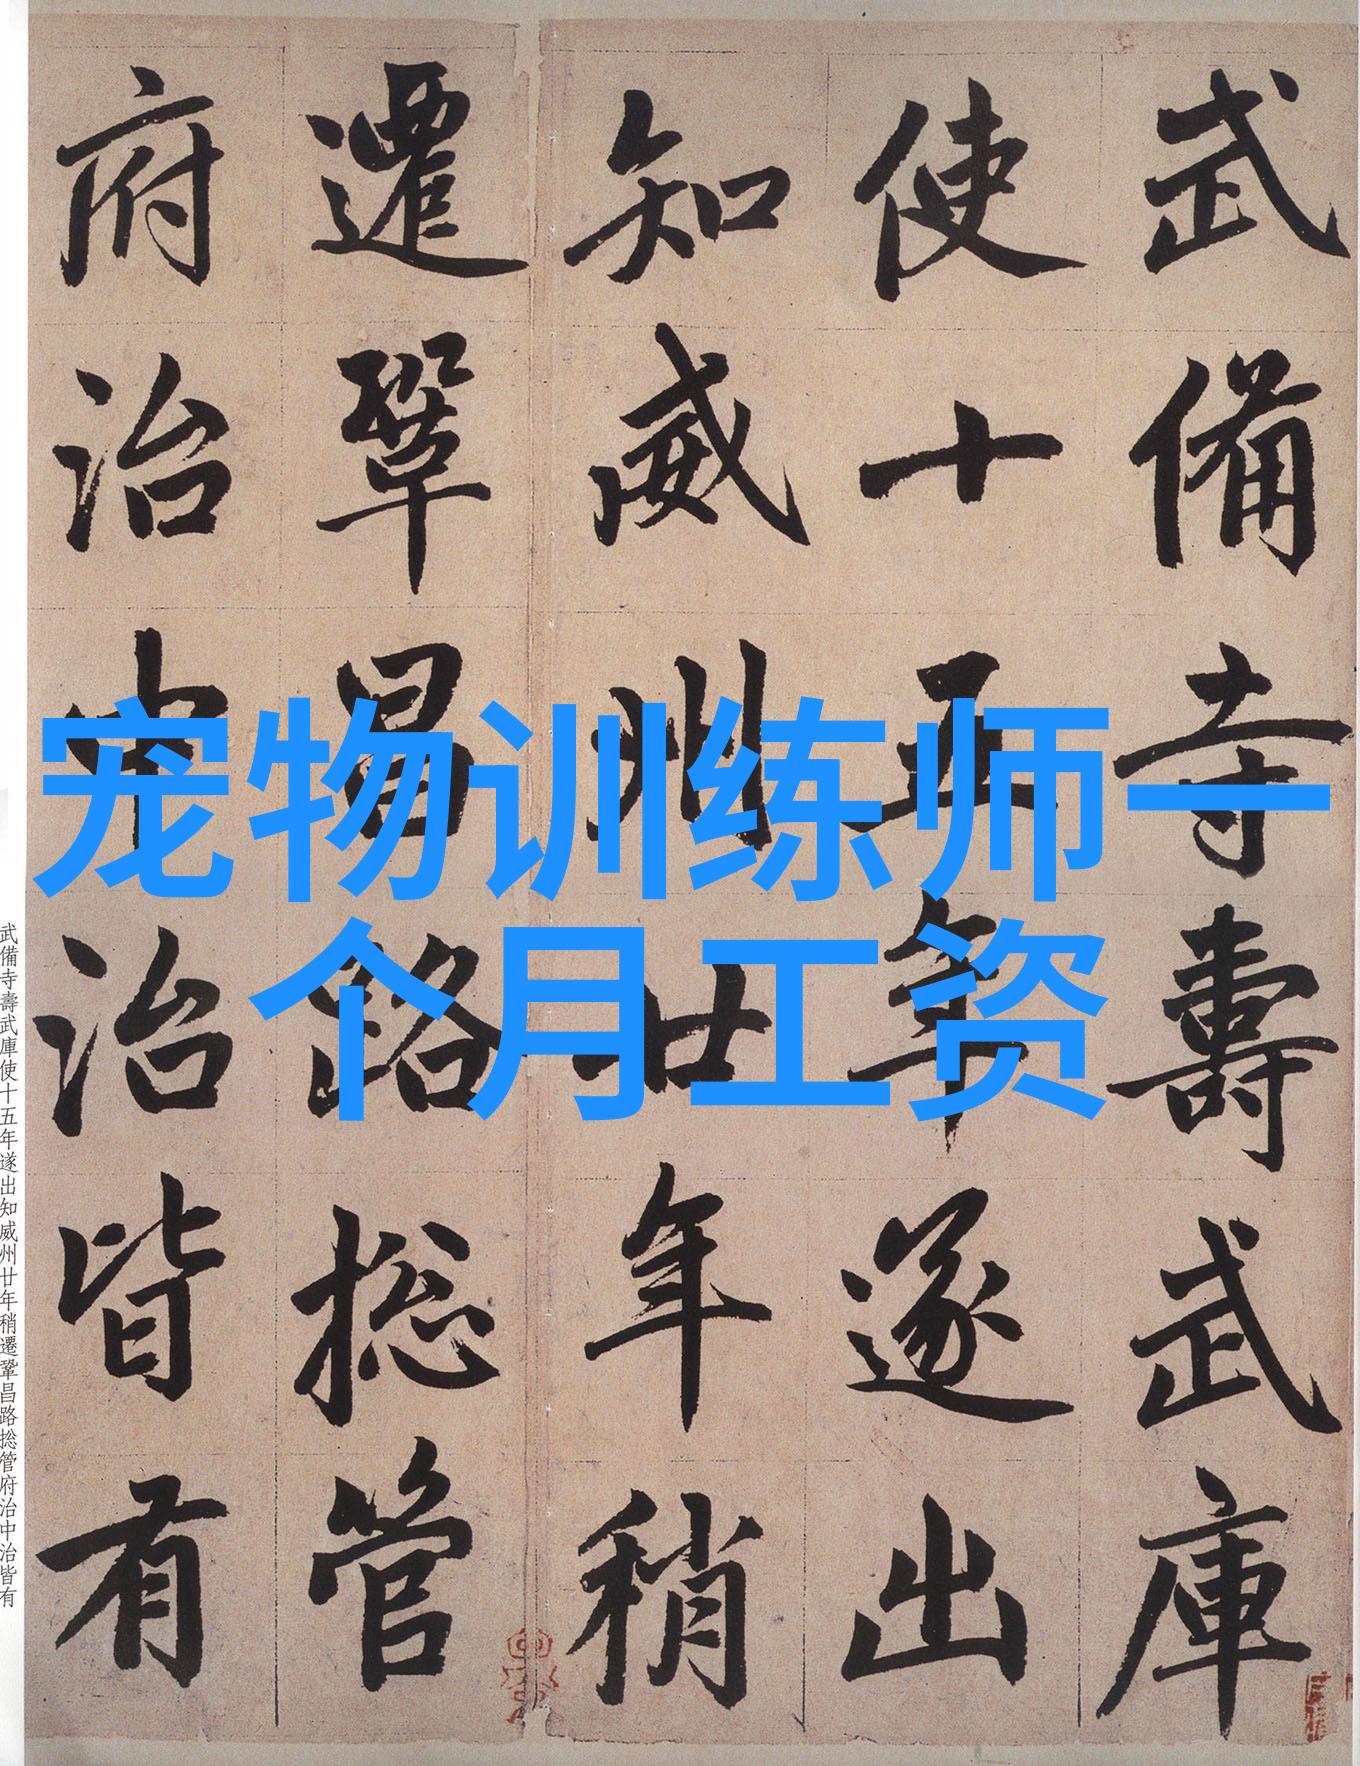 武備寺壽武庫
使十五年遂出
知威州廿年稍
遷鞏昌路捴管
府治中治皆有
宠物训练师一
个月工资
武備寺壽武庫使十五年遂出知威州廿年稍遷鞏昌路捴管府治中治皆有